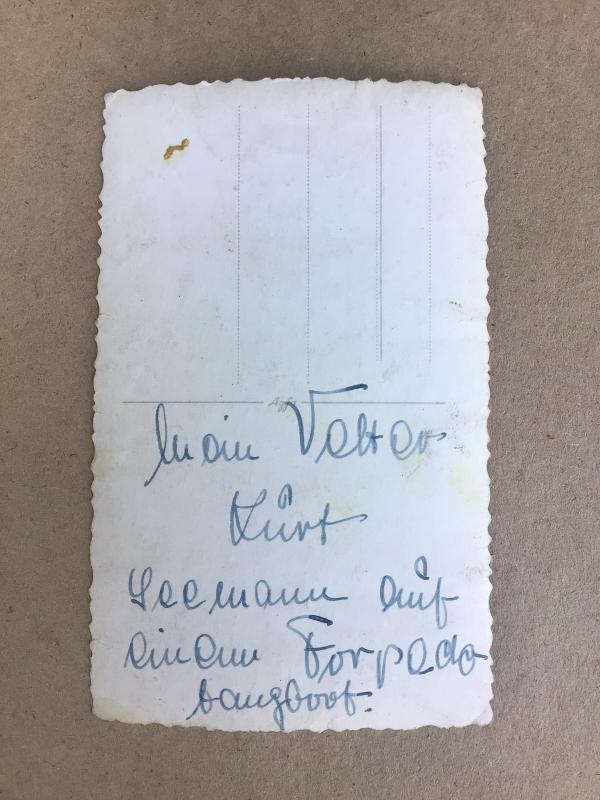 Agfa
Mein Vetter
Kurt
Seemann auf
einem Torpedo
fangboot.